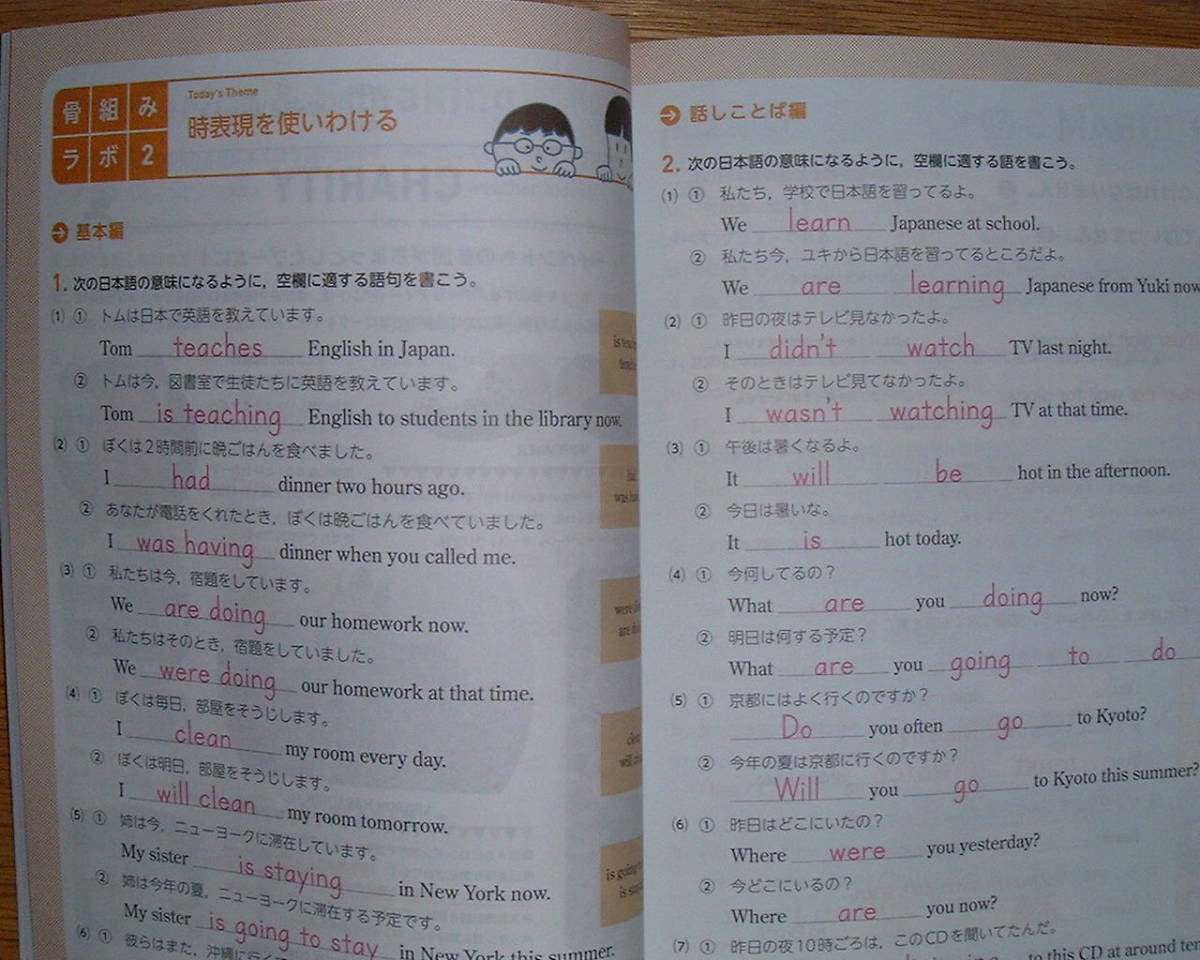 骨組み
ラボ2
Today's Theme
時表現を使いわける
基本編
1. 次の日本語の意味になるように，空欄に適する語句を書こう。
(1) ① トムは日本で英語を教えています。
Tom teaches English in Japan.
② トムは今，図書室で生徒たちに英語を教えています。
Tom is teaching English to students in the library now.
(2) ① ぼくは2時間前に晩ごはんを食べました。
I had dinner two hours ago.
② あなたが電話をくれたとき，ぼくは晩ごはんを食べていました。
I was having dinner when you called me.
(3) ① 私たちは今，宿題をしています。
We are doing our homework now.
② 私たちはそのとき，宿題をしていました。
We were doing our homework at that time.
(4) ① ぼくは毎日，部屋をそうじします。
I clean my room every day.
② ぼくは明日，部屋をそうじします。
I will clean my room tomorrow.
(5) ① 姉は今，ニューヨークに滞在しています。
My sister is staying in New York now.
② 姉は今年の夏，ニューヨークに滞在する予定です。
My sister is going to stay in New York this summer.
(6) ① 彼らはまた，沖縄に行く
話しことば編
2. 次の日本語の意味になるように，空欄に適する語を書こう。
(1) ① 私たち，学校で日本語を習ってるよ。
We learn Japanese at school.
② 私たち今，ユキから日本語を習ってるところだよ。
We are learning Japanese from Yuki now
(2) ① 昨日の夜はテレビ見なかったよ。
I didn't watch TV last night.
② そのときはテレビ見てなかったよ。
I wasn't watching TV at that time.
(3) ① 午後は暑くなるよ。
It will be hot in the afternoon.
② 今日は暑いな。
It is hot today.
(4) ① 今何してるの？
What are you doing now?
② 明日は何する予定？
What are you going to do
(5) ① 京都にはよく行くのですか？
Do you often go to Kyoto?
② 今年の夏は京都に行くのですか？
Will you go to Kyoto this summer?
(6) ① 昨日はどこにいたの？
Where were you yesterday?
② 今どこにいるの？
Where are you now?
(7) ① 昨日の夜10時ごろは，このCDを聞いてたんだ。
to this CD at around ten